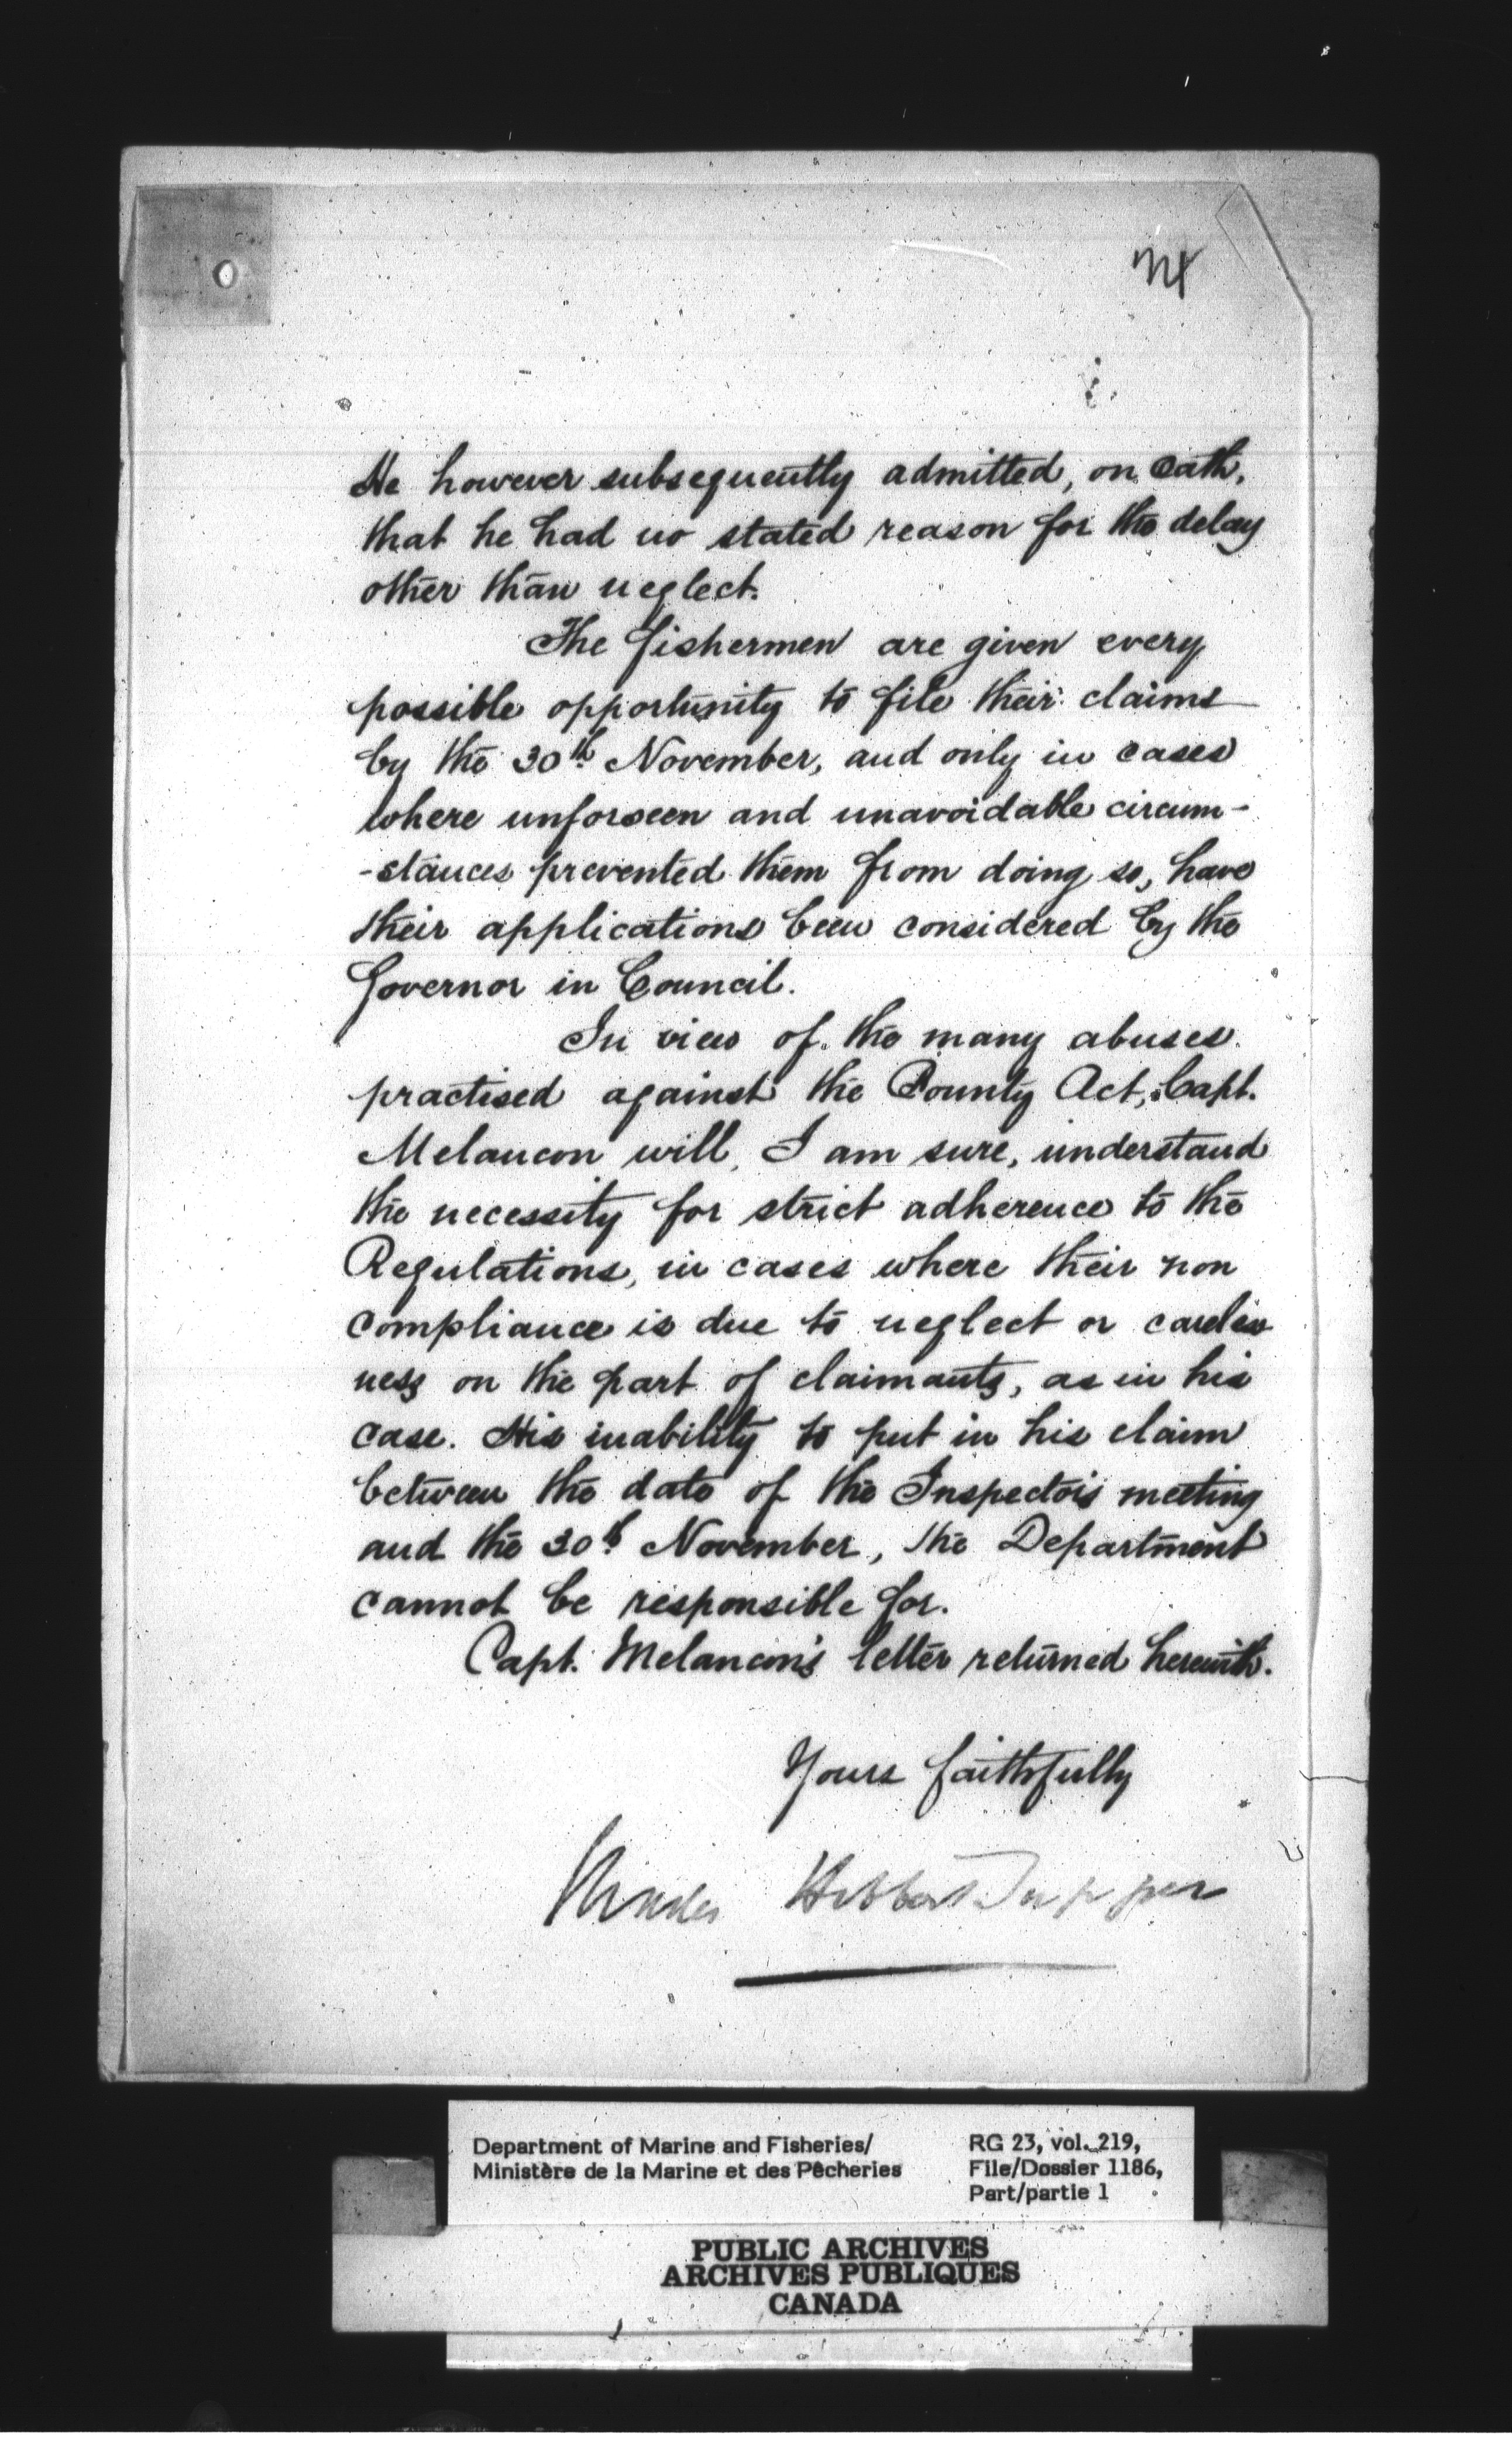 He however subsequently admitted, on oath,
that he had no stated reason for the delay
other than neglect.
The fishermen are given every
possible opportunity to file their claims
by the 30th November, and only in cases
where unforseen and unavoidable circum-
-stances prevented them from doing so, have
their applications been considered by the
Governor in Council.
In view of the many abuses
practised against the Bounty Act, Capt.
Melancon will, I am sure, understand
the necessity for strict adherence to the
Regulations, in cases where their non
compliance is due to neglect or careless
ness on the part of claimants, as in his
case. His inability to put in his claim
between the date of the Inspector's meeting
and the 30th November, the Department
cannot be responsible for.
Capt. Melancon's letter returned herewith.
Yours faithfully
Charles Hibbert Tupper
Department of Marine and Fisheries/
Ministère de la Marine et des Pêcheries
RG 23, vol. 219,
File/Dossier 1186,
Part/partie 1
PUBLIC ARCHIVES
ARCHIVES PUBLIQUES
CANADA